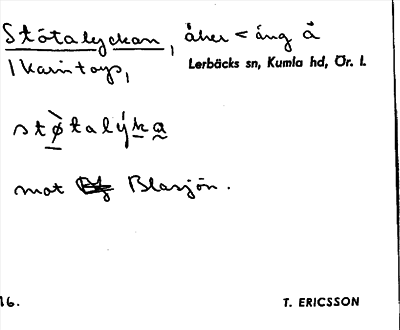 Stötalyckan, åker < äng å
Lerbäcks sn, Kumla hd, Ör. l.
stø̀talýka
mot Blasjön.
16.
T. ERICSSON